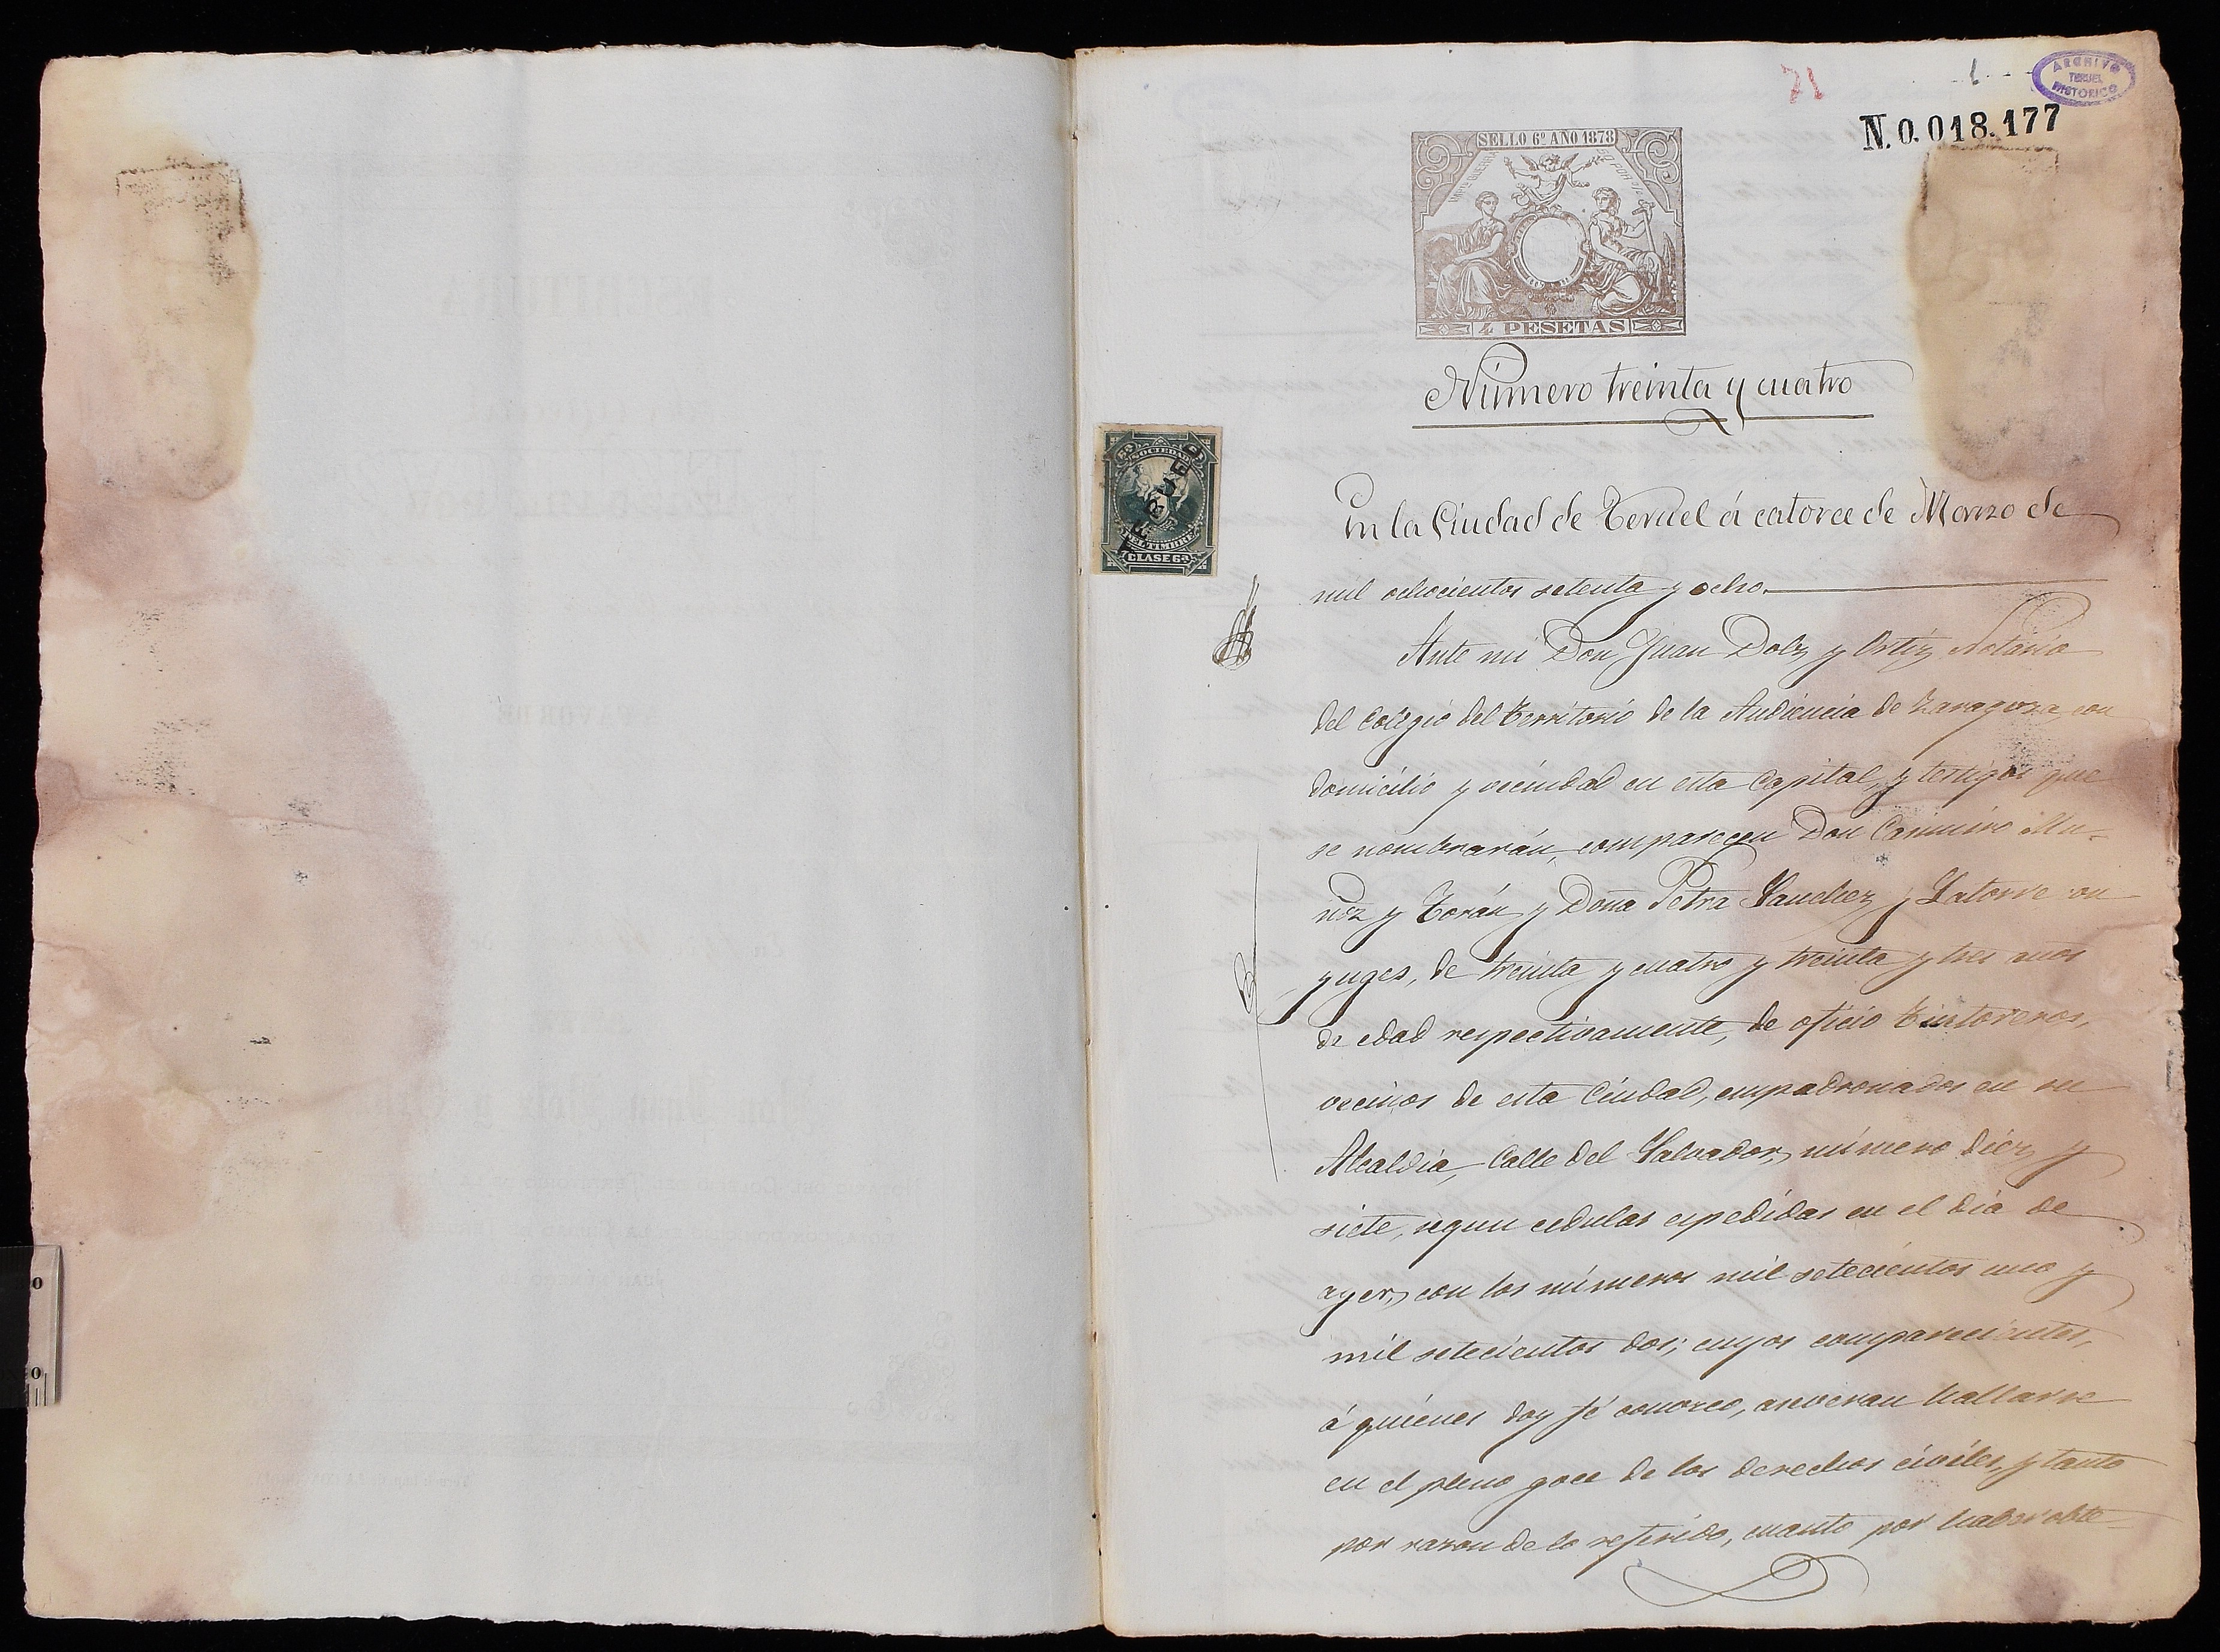 71
ARCHIVO
TERUEL
HISTORICO
N.0.018.177
SELLO 6º AÑO 1878
4 PESETAS
Número treinta y cuatro
SOCIEDAD
DEL TIMBRE
CLASE 6ª
En la Ciudad de Teruel á catorce de Marzo de
mil ochocientos setenta y ocho.
Ante mi Don Juan Dolz y Ortiz Notario
del Colegio del Territorio de la Audiencia de Zaragoza, con
domicilio y vecindad en esta Capital, y testigos que
se nombrarán, comparecen Don Casimiro Mu-
ñoz y Torán y Doña Petra Sanchez y Latorre con
yuges, de treinta y cuatro y treinta y tres años
de edad respectivamente, de oficio tintoreros,
vecinos de esta Ciudad, empadronados en su
Alcaldia, Calle del Salvador, número diez y
siete, segun cedulas espedidas en el dia de
ayer, con los números mil setecientos uno y
mil setecientos dos; cuyos comparecientes,
á quienes doy fé conozco, aseveran hallarse
en el pleno goce de los derechos civiles, y tanto
por razon de lo referido, cuanto por haber obte-